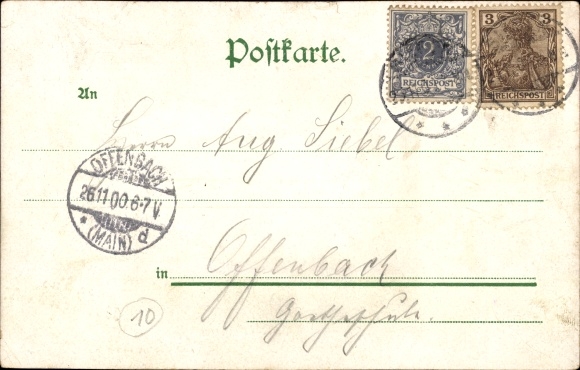 Postkarte.
2
REICHSPOST
3 3
REICHSPOST
An
Herrn Aug Siebel
OFFENBACH
26.11 00.6-7V.
* (MAIN) d
in Offenbach
Goetheschule.
10